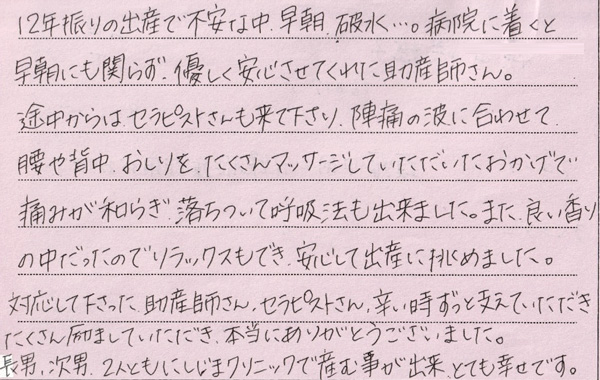 12年振りの出産で不安な中、早朝、破水…。病院に着くと
早朝にも関らず、優しく安心させてくれた助産師さん。
途中からはセラピストさんも来て下さり、陣痛の波に合わせて
腰や背中、おしりを、たくさんマッサージしていただいたおかげで
痛みが和らぎ、落ちついて呼吸法も出来ました。また、良い香り
の中だったのでリラックスもでき、安心して出産に挑めました。
対応して下さった、助産師さん、セラピストさん、辛い時ずっと支えていただき
たくさん励ましていただき、本当にありがとうございました。
長男、次男、2人ともにしじまクリニックで産む事が出来、とても幸せです。